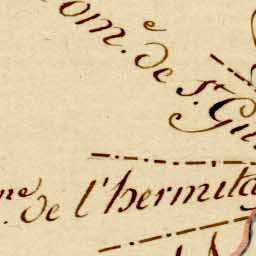 om.e de St Gu
.ne de l'hermita